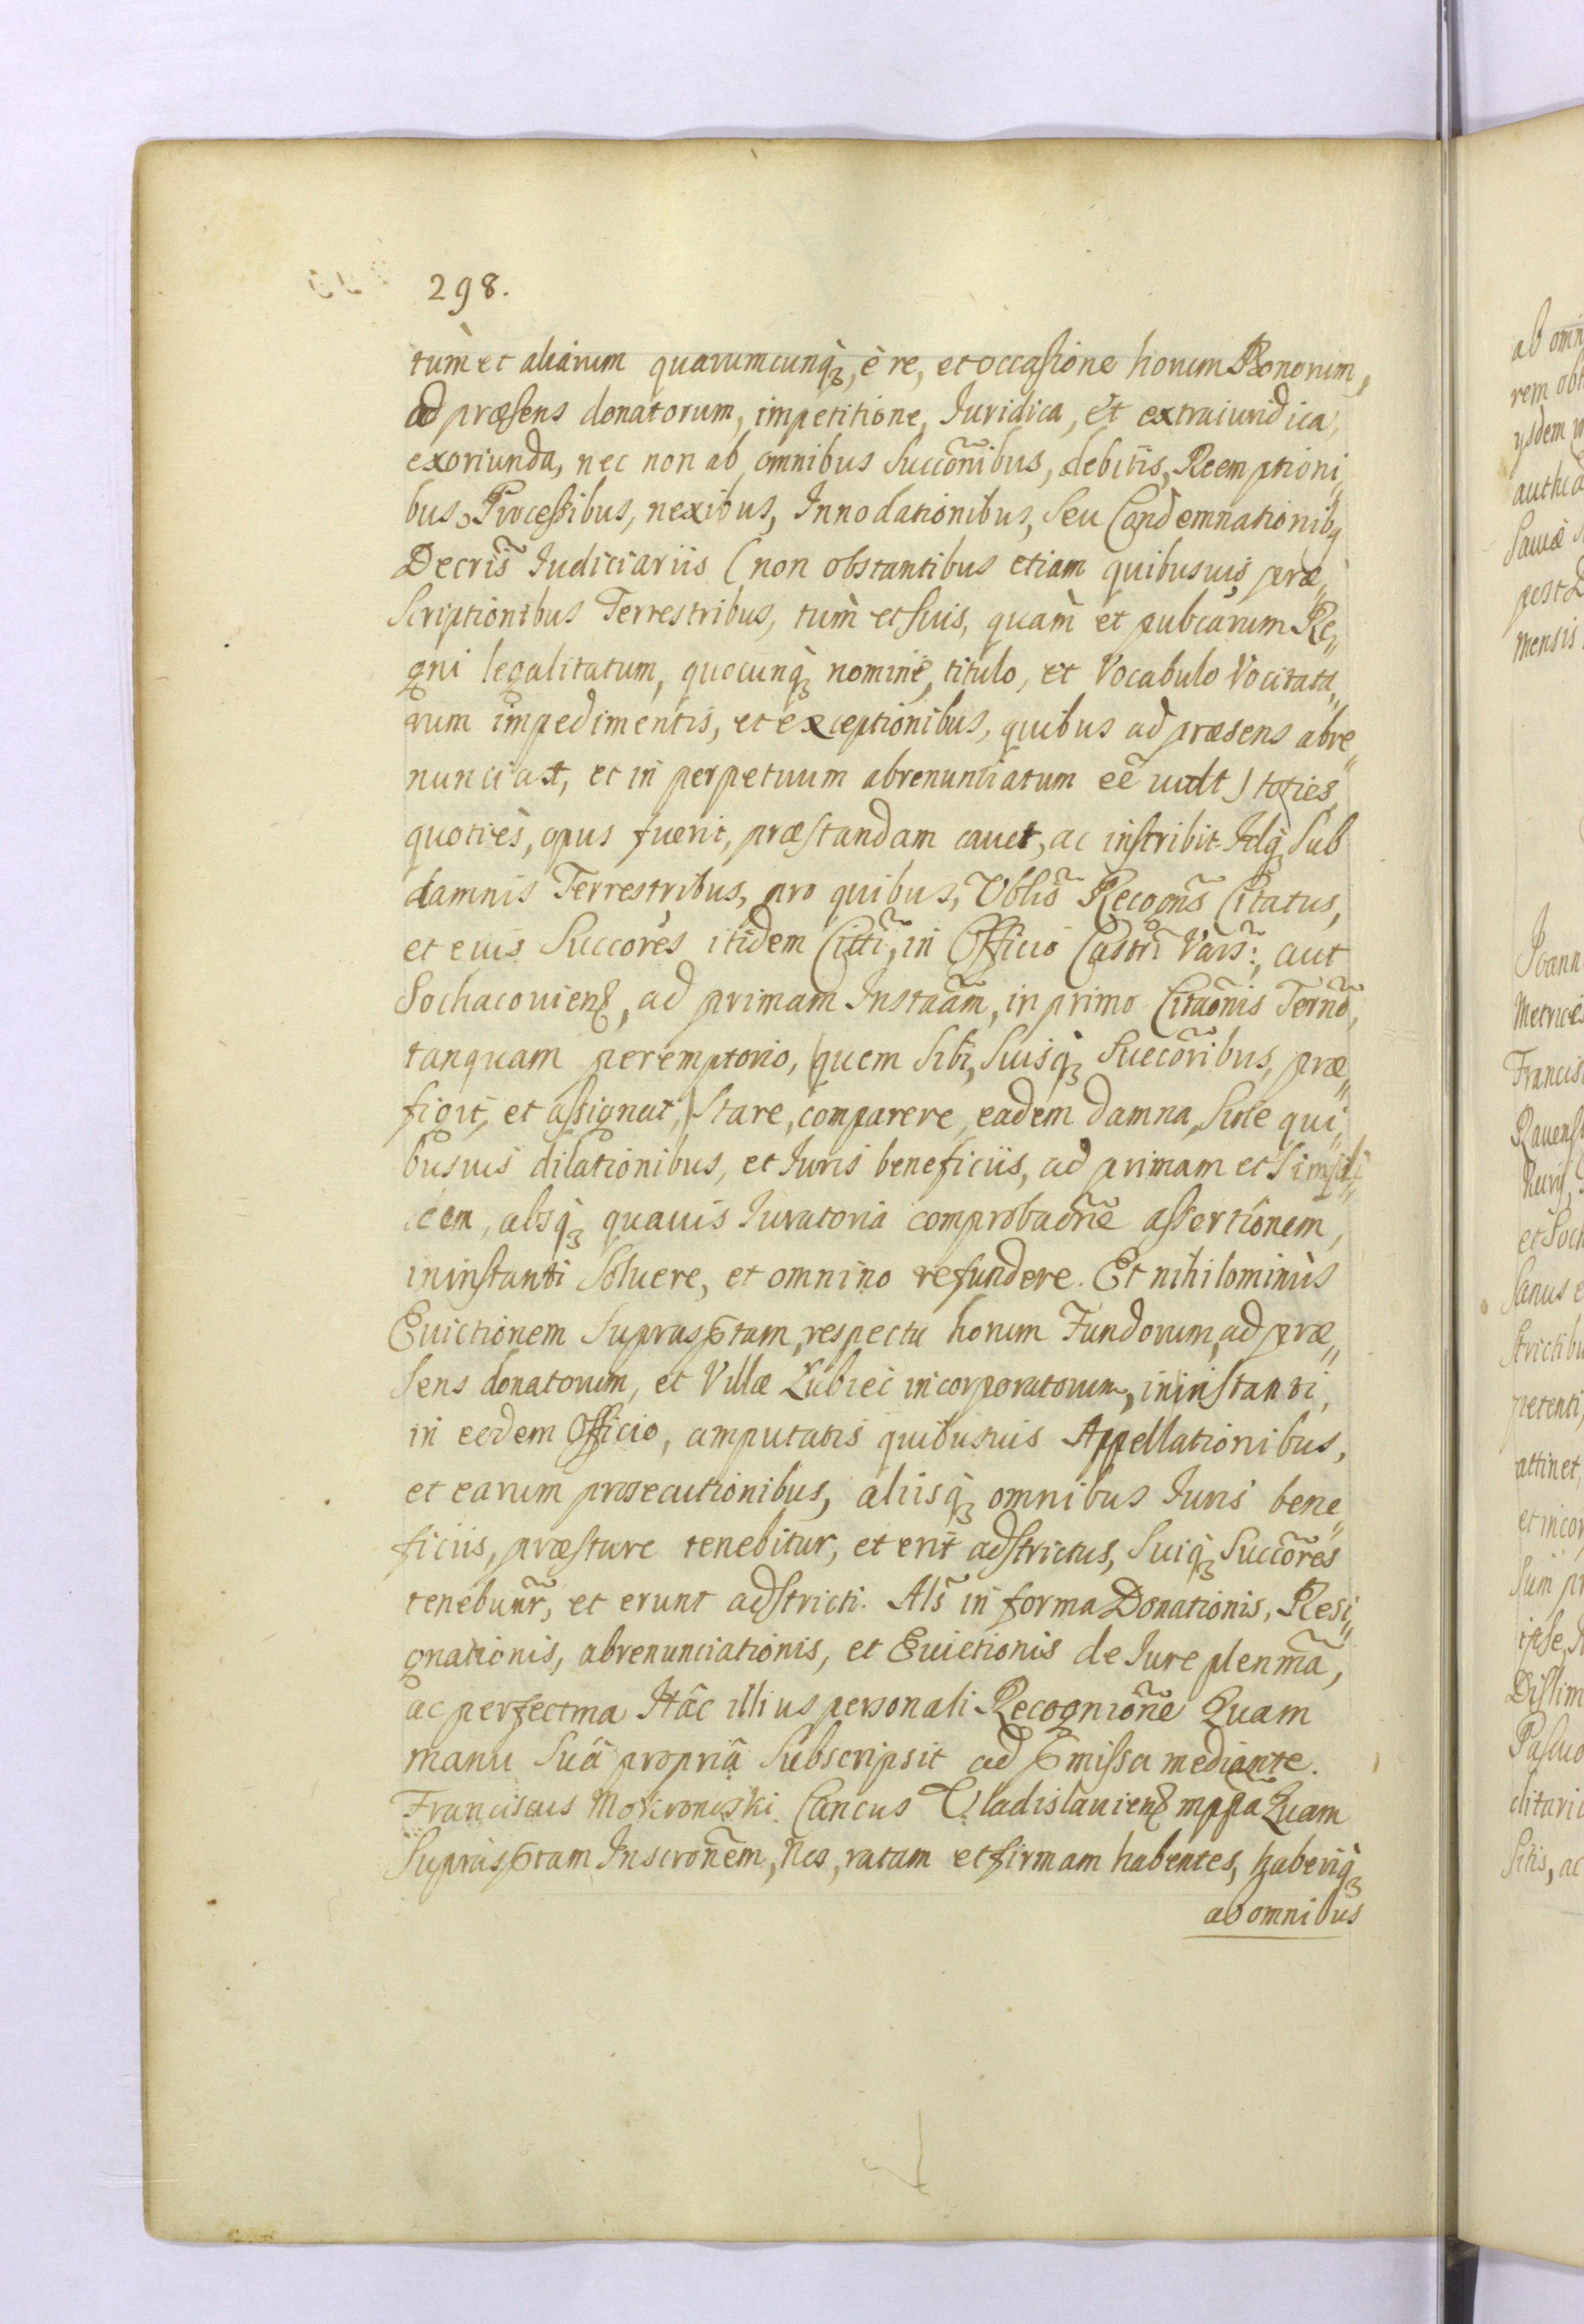 298.
tum̀ et aliarum quarumcunq̀ꝫ, è re, et occasione horum Bonorum,
ad præsens donatorum, impetitione, Iuridica, et extraiuridica,
exoriunda, nec non ab omnibus Succõnibus, debitis, Reemptioni„
bus, Processibus, nexibus, Innodationibus, Seu Condemnationibꝫ
Decris̃ Iudiciariis (non obstantibus etiam quibusuis præ„
Scriptionibus Terrestribus, tum̀ et suis, quam̀ et pubcarum Re„
gni legalitatum, quocunq̀ꝫ nomine, titulo, et Vocabulo Vocitata„
rum impedimentis, et exceptionibus, quibus ad præsens abre„
nunciat, et in perpetuum abrenuntiatum eẽ uult) toties,
quotiès, opus fuerit, præstandam cauet, ac inscribit. Idq̀ꝫ Sub
damnis Terrestribus, pro quibus, Oblis̃ Recogns̃ Citatus,
et eius Succorẽs itidem Citti,̃ in Officio Castri̊ Vars:̃, aut
Sochacouienꝫ, ad primam Instaãm, in primo Citaõnis Ternõ,
tanquam peremptorio, (quem Sibi, Suisq̀ꝫ Succoribus,̃ præ„
figit, et assignat,) Stare, comparere, eadem damna, Sine qui„
busuis dilationibus, et Iuris beneficiis, ad primam et Simpli„
cem, absq̀ꝫ quauis Iuratoria comprobaõne assertionem,
ininstanti Soluere, et omnino refundere. Et nihilominùs
Euictionem Suprasꝑtam, respectu horum Fundorum, ad præ„
Sens donatorum, et Villæ Lubiec incorporatorum, ininstanti,
in eodem Officio, amputatis quibusuis Appellationibus,
et earum prosecutionibus, aliisq̀ꝫ omnibus Iuris bene„
ficiis, præstare tenebitur, et erit adstrictus, Suiq̀ꝫ Succõres
tenebunr̃, et erunt adstricti. Als̃ in forma Donationis, Resi„
gnationis, abrenunciationis, et Euictionis de Iure plenmã,
ac perfectma Hâc illius personali Recogniõne Quam
manu Suâ propriâ Subscripsit ad ꝑmissa mediante.
Franciscus Mokronoski. Cancus Vladislauienꝫ mppa Quam
Suprasꝑtam Inscronẽm, Nos, ratam et firmam habentes, haberiq̀ꝫ
ab omnibus